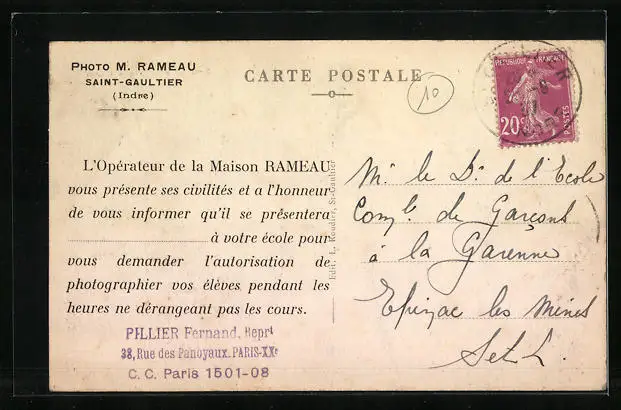 PHOTO M. RAMEAU
SAINT-GAULTIER
(Indre)
CARTE POSTALE
10
REPUBLIQUE FRANÇAISE
20c
POSTES
L'Opérateur de la Maison RAMEAU
vous présente ses civilités et a l'honneur
de vous informer qu'il se présentera
à votre école pour
vous demander l'autorisation de
photographier vos élèves pendant les
heures ne dérangeant pas les cours.
PILLIER Fernand, Reprt
38, Rue des Panoyaux. PARIS-XXe
C. C. Paris 1501-08
Edit. L. Roudier, St-Gaultier
Mr le Dr de l'Ecole
Comple de Garçons
à la Garenne
Epinac les Mines
S et L.